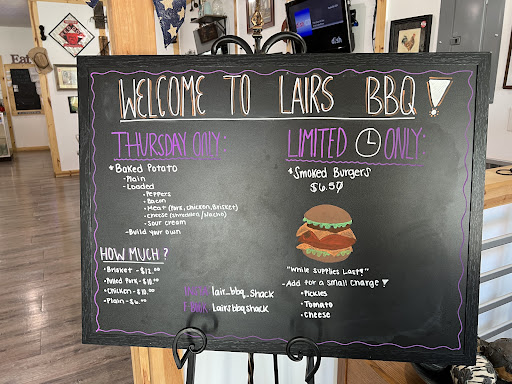 Eat
WELCOME TO LAIRS BBQ!
THURSDAY ONLY:
*Baked Potato
-Plain
-Loaded
•Peppers
•Bacon
•Meat (Pork, Chicken, Brisket)
•Cheese (Shredded/Nacho)
•Sour Cream
-Build your own
HOW MUCH?
•Brisket - $12.00
•Pulled Pork - $10.00
•Chicken - $10.00
•Plain - $6.00
lair_bbq_shack
F BOOK: lairsbbqshack
LIMITED ONLY:
*Smoked Burgers
$6.50
"While supplies Last!"
-Add for a small charge!
•Pickles
•Tomato
•Cheese